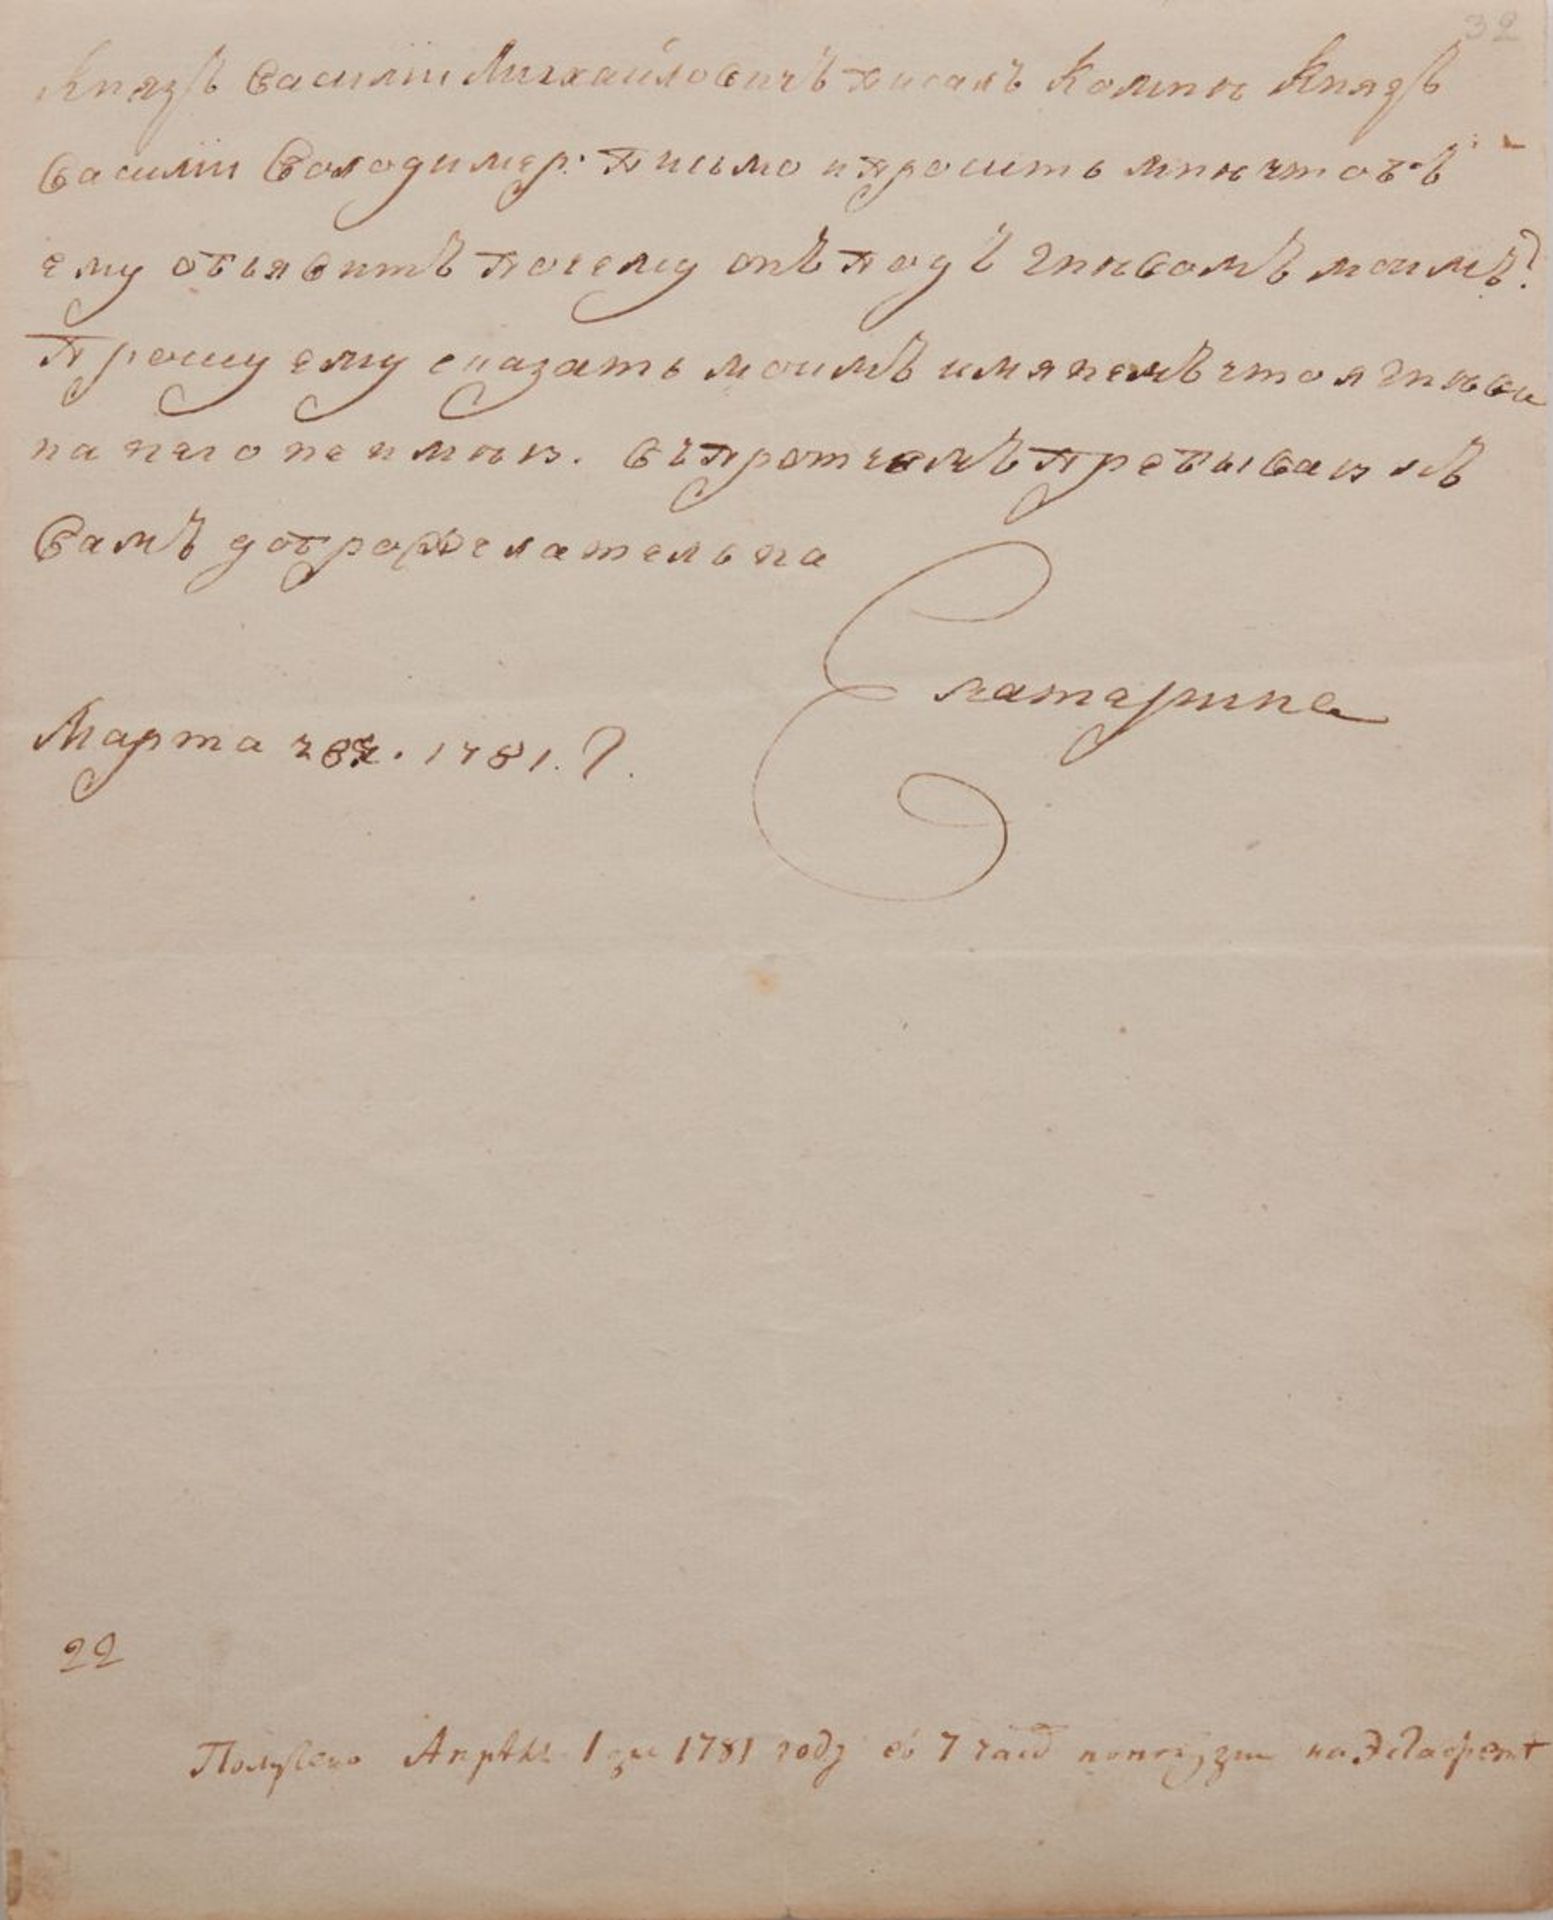 32
Князь Василіи Михайловичъ писалъ Комнѣ Князь
василіи Володимер: писмо и просить мнѣ чтобъ
ему обьявитъ почему онъ подъ гнѣвомъ моимъ?
прошу ему сказать моимъ имянемъ что я гнѣва
на него не имѣю. въ протчемъ пребываю къ
вамъ доброжелательна
Екатерина
Марта 1781. г.
22
Получено Апрѣля 1 дня 1781 году въ 7 часу пополудни на Эстафет